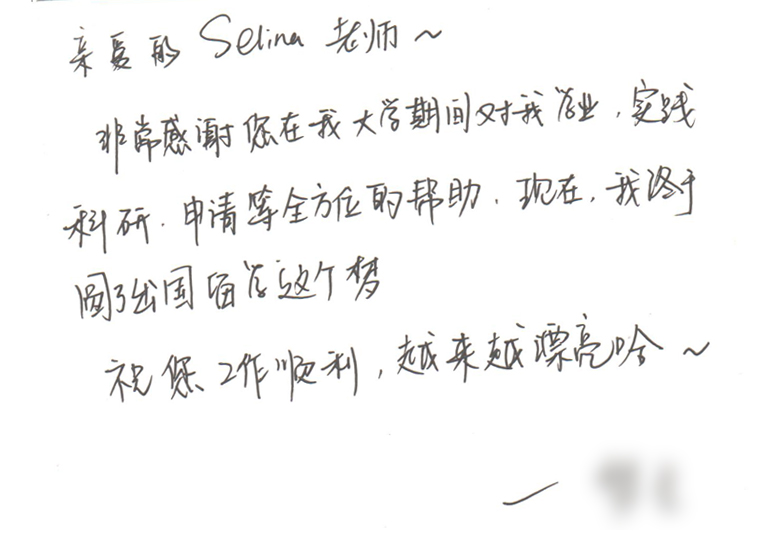 亲爱的 Selina 老师～
非常感谢您在我大学期间对我学业，实践
科研．申请等全方位的帮助．现在，我终于
圆了出国留学这个梦
祝您工作顺利，越来越漂亮哈～
—